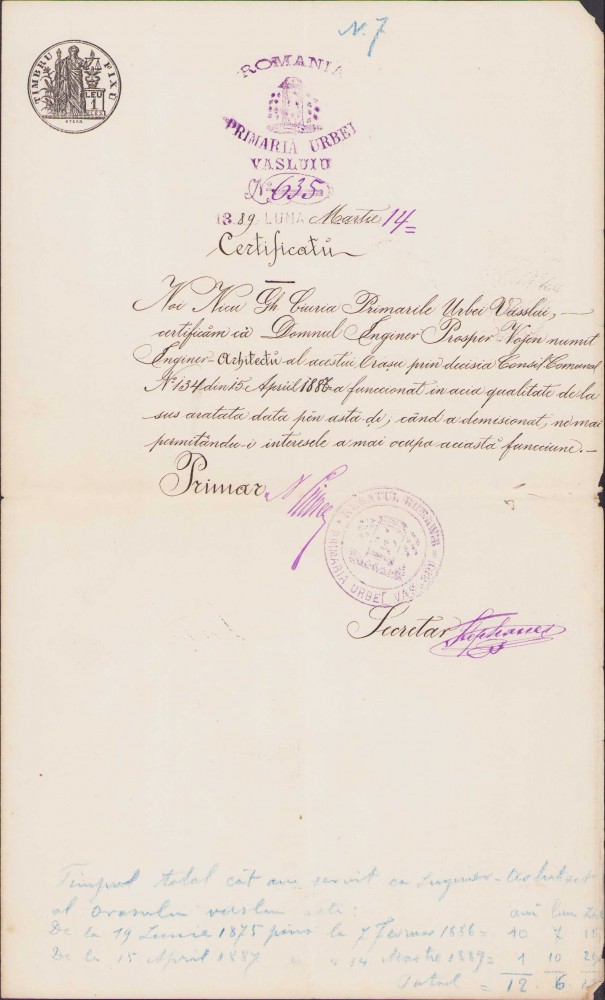 N. 7
TIMBRU FIXU
LEU
1
ROMANIA
PRIMARIA URBEI
VASLUIU
No 635
1889 LUNA Martie 14
Certificatŭ
Noi Nicu Gh Ciuria Primarile Urbei Vaslui,
certificăm că Domnul Enginer Prosper Vojen numit
Enginer-Arhitectŭ al acestui Orasu prin decisia Consil. Comunal
No 134 din 15 Aprilĭ 1887 a funcționat în acia qualitate de la
sus aratata data pĕn asta di, cănd a demisionat, ne mai
permitĕndu-i interesele a mai ocupa această funcțiune.
Primar
REGATUL ROMANIEI
PRIMARIA URBEI VASLUI
Secretar
Timpul total cât am servit ca Inginer-Arhitect
al orasului Vaslui este: ani luni zile
De la 19 Iunie 1875 pina la 7 Februar 1886 = 10 7
De la 15 April 1887 " " 14 Martie 1889 = 1 10
Total = 12 6